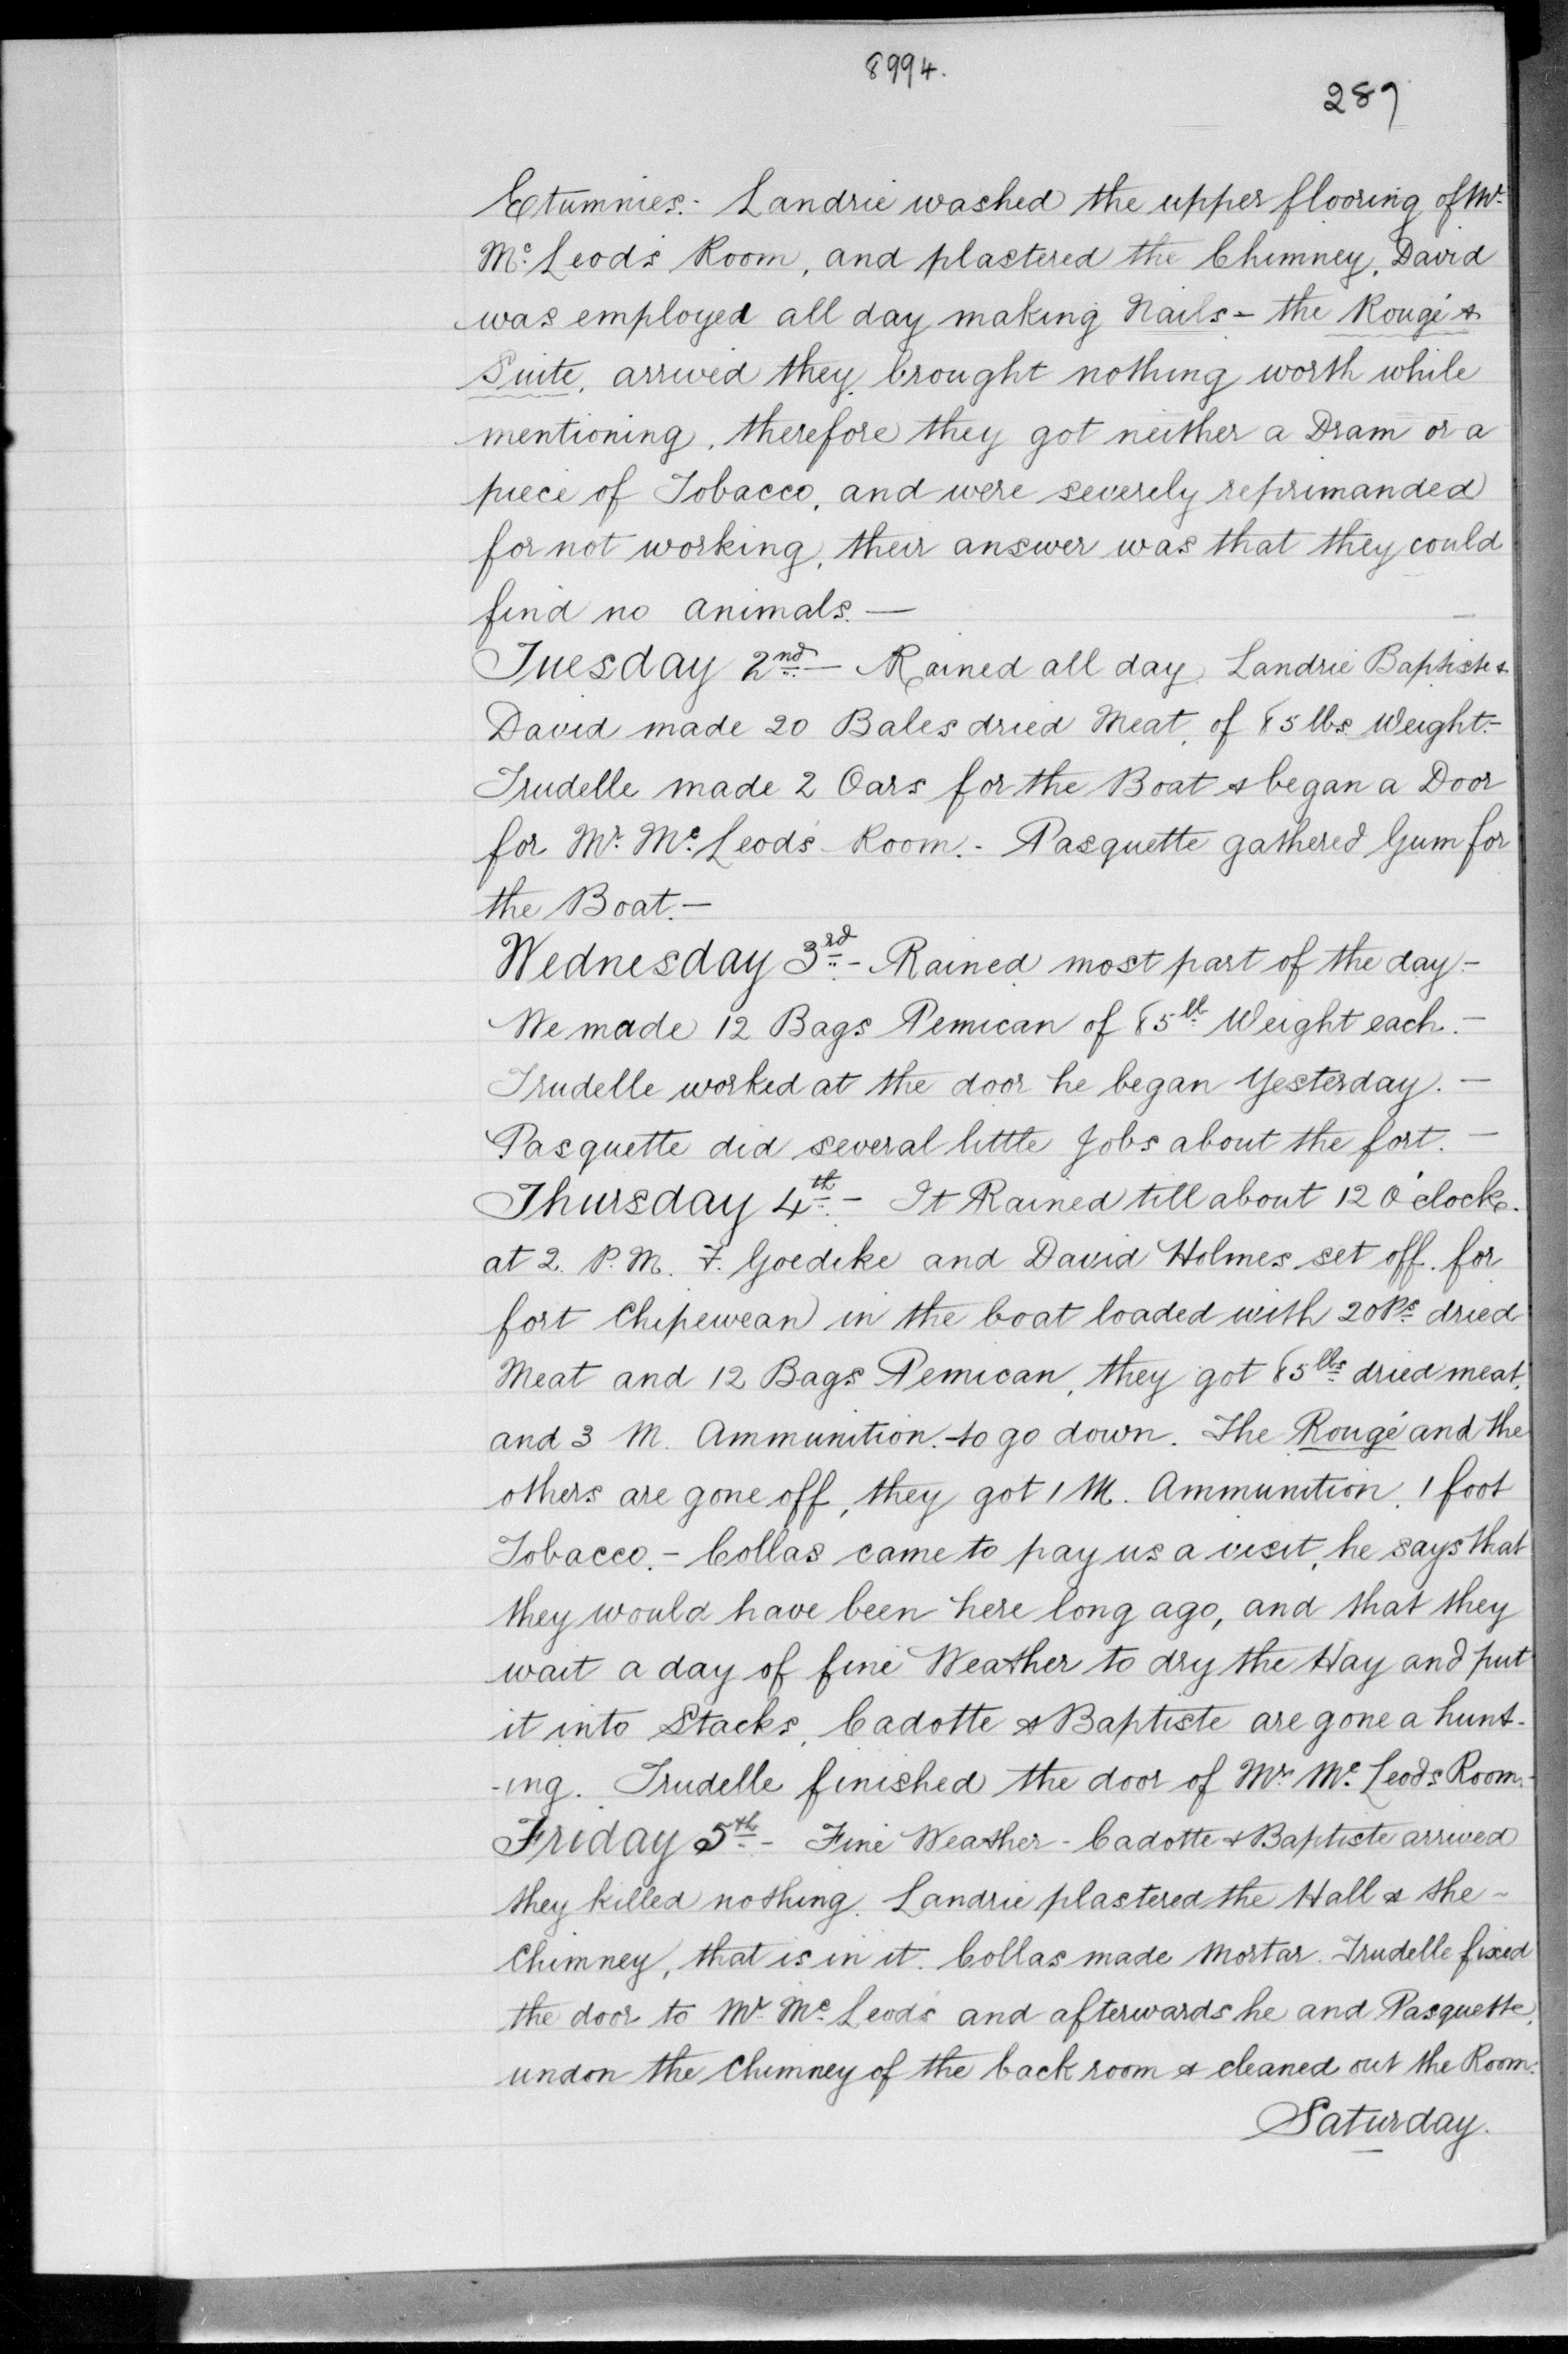 8994.
289
Etumnies.- Landrie washed the upper flooring of Mr.
Mc. Leod's Room, and plastered the Chimney, David
was employed all day making Nails - the Rougé &
Suite, arrived they brought nothing worth while
mentioning, therefore they got neither a Dram or a
piece of Tobacco, and were severely reprimanded
for not working, their answer was that they could
find no animals.—
Tuesday 2nd.— Rained all day, Landrie Baptiste &
David made 20 Bales dried Meat, of 85 lbs Weight.-
Trudelle made 2 Oars for the Boat & began a Door
for Mr. Mc. Leod's Room.- Pasquette gathered Gum for
the Boat.—
Wednesday 3rd.- Rained most part of the day.-
We made 12 Bags Pemican of 85 ll. Weight each.—
Trudelle worked at the door he began Yesterday.—
Pasquette did several little Jobs about the fort.—
Thursday 4th.- It Rained till about 12 O'clock.
at 2. P.M. F. Goedike and David Holmes set off. for
fort Chipewean in the boat loaded with 20 Ps. dried
Meat and 12 Bags Pemican, they got 85 lbs. dried meat,
and 3 M. Ammunition. to go down. The Rougé and the
others are gone off, they got 1 M. Ammunition, 1 foot
Tobacco.- Collas came to pay us a visit, he says that
they would have been here long ago, and that they
wait a day of fine Weather to dry the Hay and put
it into Stacks, Cadotte & Baptiste are gone a hunt-
-ing. Trudelle finished the door of Mr. Mc. Leods Room.-
Friday 5th.- Fine Weather - Cadotte & Baptiste arrived
they killed nothing. Landrie plastered the Hall & the -
Chimney, that is in it. Collas made Mortar. Trudelle fixed
the door to Mr. Mc. Leod's and afterwards he and Pasquette,
undon the Chimney of the back room & cleaned out the Room.
Saturday.